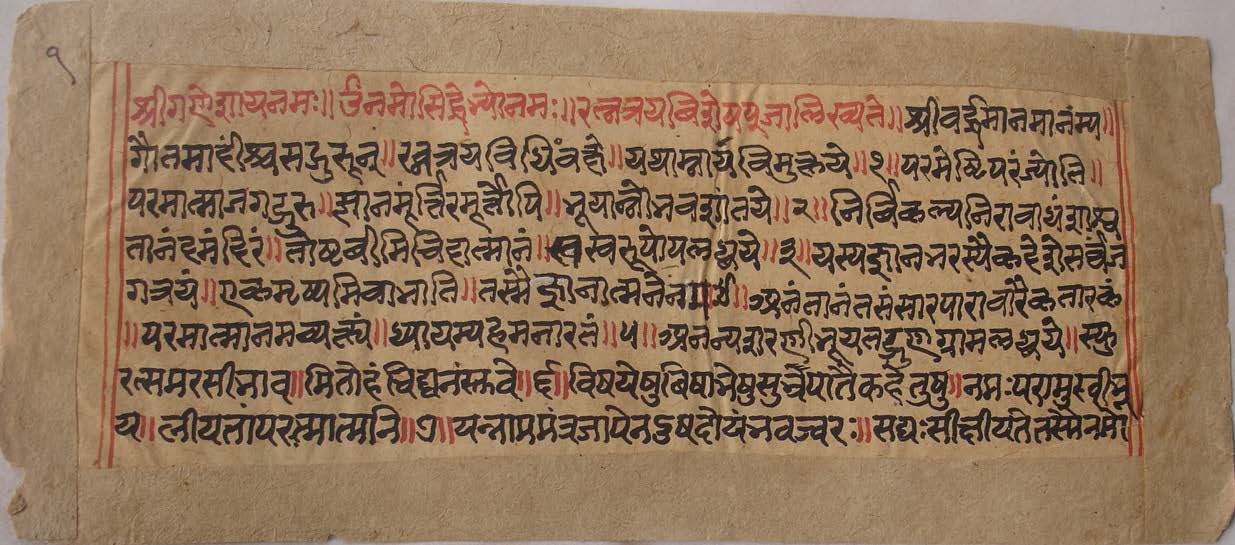 १
श्रीगणेशायनमः॥ उंनमोसिद्धेभ्योनमः॥ रत्नत्रयविशेषपूजालिख्यते॥ श्रीवर्द्धमानमानंम्य॥
गौतमादींश्चसद्गुरून्॥ रत्नत्रयविधिंवक्षे॥ यथाम्नायंविमुक्तये॥१॥ परमेष्टिपरंज्योति॥
परमात्माजगद्गुरु॥ ज्ञानंमूर्त्तिरमूर्त्तोपि॥ भूयान्नोभवशांतये॥२॥ निर्विकल्पनिरावाधंशाश्व
तानंदमंदिरं॥ तोष्टवीमिचिदात्मानं॥ स्वस्वरूपोपलब्धये॥३॥ यस्यज्ञानभरस्यैकदेशेसर्वंज
गत्रयं॥ एकमृष्यमिवाभाति॥ तस्मै ज्ञानात्मने अनंतानंतसंसारपारावारैकतारकं
॥ परमात्मानमव्यक्तं॥ ध्यायाम्यहमनारतं॥५॥ अनन्यशरणीभूयतद्गुणग्रामलब्धये॥ स्फु
रत्समरसीभाव॥ मितोहंचिद्घनंस्तवे॥६॥ विषयेषुबिषाभेषु नमःपराङ्मुखीभू
य॥ लीयतांपरमात्मात्मनि॥७॥ यन्नाममंत्रजापेन सद्यःसीर्यते तस्मैनमो